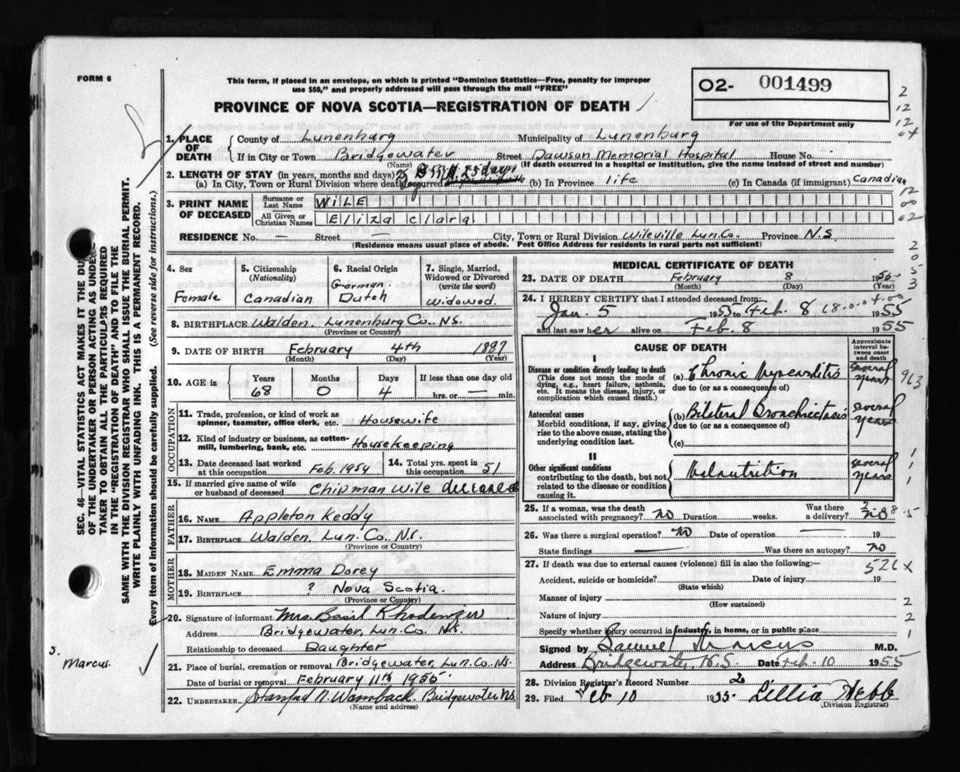 FORM 6
This form, if placed in an envelope, on which is printed "Dominion Statistics—Free, penalty for improper
use $50," and properly addressed will pass through the mail "FREE"
PROVINCE OF NOVA SCOTIA—REGISTRATION OF DEATH
O2- 001499
For use of the Department only
2
12
12
04
SEC. 46—VITAL STATISTICS ACT MAKES IT THE
OF THE UNDERTAKER OR PERSON ACTING AS
TAKER TO OBTAIN ALL THE PARTICULARS REQUIRED
IN THE "REGISTRATION OF DEATH" AND FILE THE
SAME WITH THE DIVISION REGISTRAR WHO SHALL ISSUE THE BURIAL PERMIT.
WRITE PLAINLY WITH UNFADING INK. THIS IS A PERMANENT RECORD.
Every item of information should be carefully supplied. (See reverse side for instructions.)
1. PLACE OF DEATH
County of Lunenburg Municipality of Lunenburg
If in City or Town Bridgewater Street Dawson Memorial Hospital House No.
(Name) (If death occurred in a hospital or institution, give the name instead of street and number)
2. LENGTH OF STAY (in years, months and days) 25 days
(a) In City, Town or Rural Division where death occurred (b) In Province life (c) In Canada (if immigrant) Canadian
3. PRINT NAME OF DECEASED
Surname or Last Name WILE
All Given or Christian Names Eliza Clara
12
00
02
RESIDENCE No. — Street — City, Town or Rural Division Wileville Lun.Co. Province N.S
(Residence means usual place of abode. Post Office Address for residents in rural parts not sufficient)
2
0
5
3
4. Sex
Female
5. Citizenship (Nationality)
Canadian
6. Racial Origin
German
Dutch
7. Single, Married, Widowed or Divorced (write the word)
Widowed
8. BIRTHPLACE Walden, Lunenburg Co., N.S.
(Province or Country)
9. DATE OF BIRTH February 4th 1887
(Month) (Day) (Year)
10. AGE in Years Months Days If less than one day old
68 0 4 hrs. or min.
OCCUPATION
11. Trade, profession, or kind of work as
spinner, teamster, office clerk, etc. Housewife
12. Kind of industry or business, as cotton-
mill, lumbering, bank, etc. Housekeeping
13. Date deceased last worked at this occupation Feb. 1954
14. Total yrs. spent in this occupation 51
15. If married give name of wife
or husband of deceased Chipman Wile deceased
FATHER
16. NAME Appleton Keddy
17. BIRTHPLACE Walden, Lun. Co., N.S.
(Province or Country)
MOTHER
18. MAIDEN NAME Emma Dorey
19. BIRTHPLACE ? Nova Scotia
(Province or Country)
20. Signature of informant Mrs. Basil Rhodenizer
Address Bridgewater, Lun. Co. N.S.
Relationship to deceased Daughter
S. Marcus.
21. Place of burial, cremation or removal Bridgewater, Lun. Co. NS.
Date of burial or removal February 11th 1955
22. UNDERTAKER Stanford N. Wambach, Bridgewater NS
(Name and address)
MEDICAL CERTIFICATE OF DEATH
23. DATE OF DEATH February 8 1955
(Month) (Day) (Year)
24. I HEREBY CERTIFY that I attended deceased from:
Jan. 5 1955 to Feb. 8 1955
and last saw her alive on Feb. 8 1955
CAUSE OF DEATH
Approximate interval between onset and death
I
Disease or condition directly leading to death
(This does not mean the mode of
dying, e.g., heart failure, asthenia,
etc. It means the disease, injury, or
complication which caused death.)
(a) Chronic Myocarditis several years
due to (or as a consequence of)
963
Antecedent causes
Morbid conditions, if any, giving
rise to the above cause, stating the
underlying condition last.
(b) Bilateral Bronchiectasis several years
due to (or as a consequence of)
(c)
II
Other significant conditions
contributing to the death, but not
related to the disease or condition
causing it.
Malnutrition several years
1
1
25. If a woman, was the death
associated with pregnancy? NO Duration weeks. Was there a delivery? NO
26. Was there a surgical operation? NO Date of operation 19
State findings — Was there an autopsy? NO
27. If death was due to external causes (violence) fill in also the following:—
526X
Accident, suicide or homicide? Date of injury 19
(State which)
Manner of injury
(How sustained)
Nature of injury
2
2
1
Specify whether injury occurred in industry, in home, or in public place
Signed by Samuel Marcus M.D.
Address Bridgewater, N.S. Date Feb. 10 1955
28. Division Registrar's Record Number 2
29. Filed Feb 10 1955. Lillia Webb
(Division Registrar)